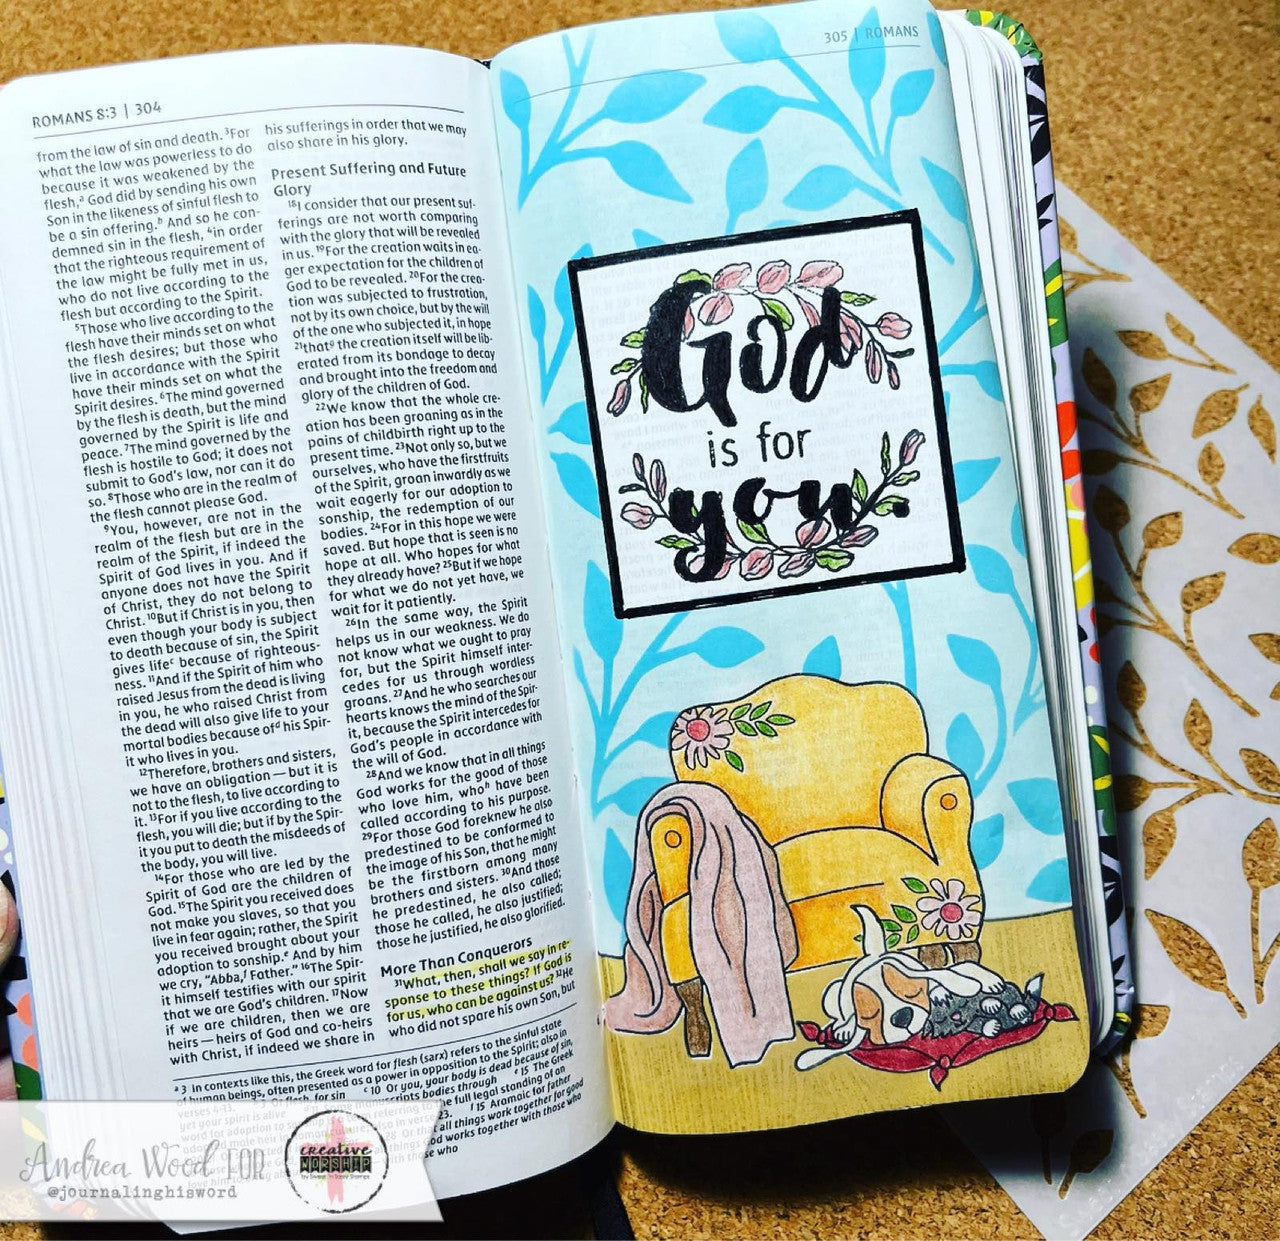 ROMANS 8:3 | 304
from the law of sin and death. ³For
what the law was powerless to do
because it was weakened by the
flesh,ᵃ God did by sending his own
Son in the likeness of sinful flesh to
be a sin offering.ᵇ And so he con-
demned sin in the flesh, ⁴in order
that the righteous requirement of
the law might be fully met in us,
who do not live according to the
flesh but according to the Spirit.
⁵Those who live according to the
flesh have their minds set on what
the flesh desires; but those who
live in accordance with the Spirit
have their minds set on what the
Spirit desires. ⁶The mind governed
by the flesh is death, but the mind
governed by the Spirit is life and
peace. ⁷The mind governed by the
flesh is hostile to God; it does not
submit to God's law, nor can it do
so. ⁸Those who are in the realm of
the flesh cannot please God.
⁹You, however, are not in the
realm of the flesh but are in the
realm of the Spirit, if indeed the
Spirit of God lives in you. And if
anyone does not have the Spirit
of Christ, they do not belong to
Christ. ¹⁰But if Christ is in you, then
even though your body is subject
to death because of sin, the Spirit
gives lifeᶜ because of righteous-
ness. ¹¹And if the Spirit of him who
raised Jesus from the dead is living
in you, he who raised Christ from
the dead will also give life to your
mortal bodies because ofᵈ his Spir-
it who lives in you.
¹²Therefore, brothers and sisters,
we have an obligation — but it is
not to the flesh, to live according to
it. ¹³For if you live according to the
flesh, you will die; but if by the Spir-
it you put to death the misdeeds of
the body, you will live.
¹⁴For those who are led by the
Spirit of God are the children of
God. ¹⁵The Spirit you received does
not make you slaves, so that you
live in fear again; rather, the Spirit
you received brought about your
adoption to sonship.ᵉ And by him
we cry, “Abba,ᶠ Father.” ¹⁶The Spir-
it himself testifies with our spirit
that we are God's children. ¹⁷Now
if we are children, then we are
heirs — heirs of God and co-heirs
with Christ, if indeed we share in
his sufferings in order that we may
also share in his glory.
Present Suffering and Future
Glory
¹⁸I consider that our present suf-
ferings are not worth comparing
with the glory that will be revealed
in us. ¹⁹For the creation waits in ea-
ger expectation for the children of
God to be revealed. ²⁰For the crea-
tion was subjected to frustration,
not by its own choice, but by the will
of the one who subjected it, in hope
²¹thatᵍ the creation itself will be lib-
erated from its bondage to decay
and brought into the freedom and
glory of the children of God.
²²We know that the whole cre-
ation has been groaning as in the
pains of childbirth right up to the
present time. ²³Not only so, but we
ourselves, who have the firstfruits
of the Spirit, groan inwardly as we
wait eagerly for our adoption to
sonship, the redemption of our
bodies. ²⁴For in this hope we were
saved. But hope that is seen is no
hope at all. Who hopes for what
they already have? ²⁵But if we hope
for what we do not yet have, we
wait for it patiently.
²⁶In the same way, the Spirit
helps us in our weakness. We do
not know what we ought to pray
for, but the Spirit himself inter-
cedes for us through wordless
groans. ²⁷And he who searches our
hearts knows the mind of the Spir-
it, because the Spirit intercedes for
God's people in accordance with
the will of God.
²⁸And we know that in all things
God works for the good of those
who love him, whoʰ have been
called according to his purpose.
²⁹For those God foreknew he also
predestined to be conformed to
the image of his Son, that he might
be the firstborn among many
brothers and sisters. ³⁰And those
he predestined, he also called;
those he called, he also justified;
those he justified, he also glorified.
More Than Conquerors
³¹What, then, shall we say in re-
sponse to these things? If God is
for us, who can be against us? ³²He
who did not spare his own Son, but
ᵃ 3 In contexts like this, the Greek word for flesh (sarx) refers to the sinful state
of human beings, often presented as a power in opposition to the Spirit; also in
305 | ROMANS
God
is for
you.
Andrea Wood FOR
@journalinghisword
creative
WORSHIP